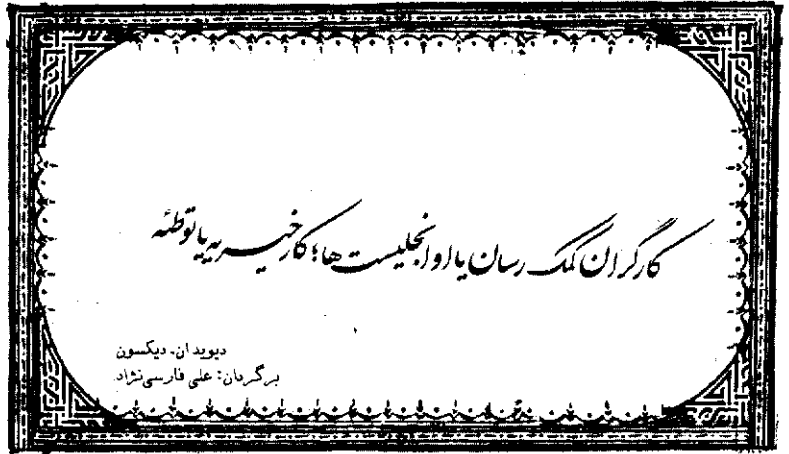 کارگران کمک رسان یا اوانجلیست ها؛ کار خیریه یا توطئه
دیوید ان. دیکسون
برگردان: علی فارسی‌نژاد